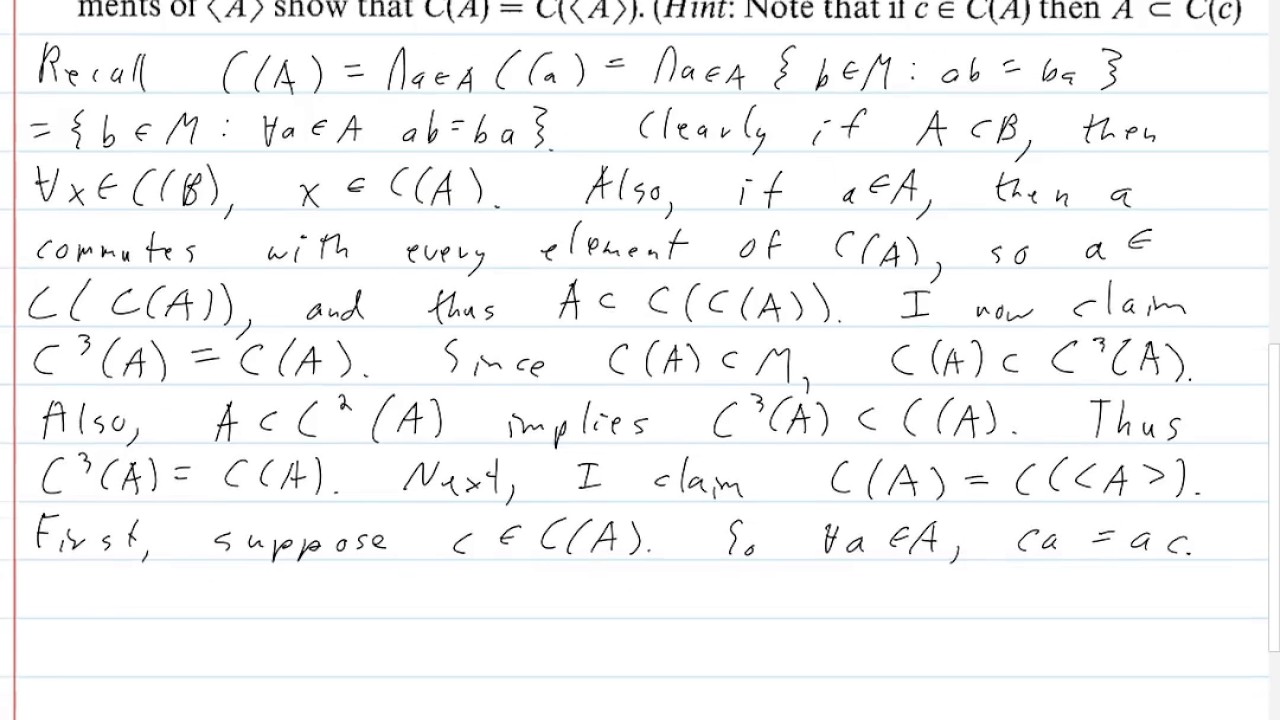 ments of ⟨A⟩ show that C(A) = C(⟨A⟩). (Hint: Note that if c ∈ C(A) then A ⊂ C(c)
Recall C(A) = ∩a∈A C(a) = ∩a∈A { b∈M : ab = ba }
= { b ∈ M : ∀a ∈ A ab = ba }. Clearly if A ⊂ B, then
∀x ∈ C(B), x ∈ C(A). Also, if a ∈ A, then a
commutes with every element of C(A), so a ∈
C( C(A)), and thus A ⊂ C(C(A)). I now claim
C³(A) = C(A). Since C(A) ⊂ M, C(A) ⊂ C³(A).
Also, A ⊂ C²(A) implies C³(A) ⊂ C(A). Thus
C³(A) = C(A). Next, I claim C(A) = C(<A>).
First, suppose c ∈ C(A). So ∀a ∈ A, ca = ac.